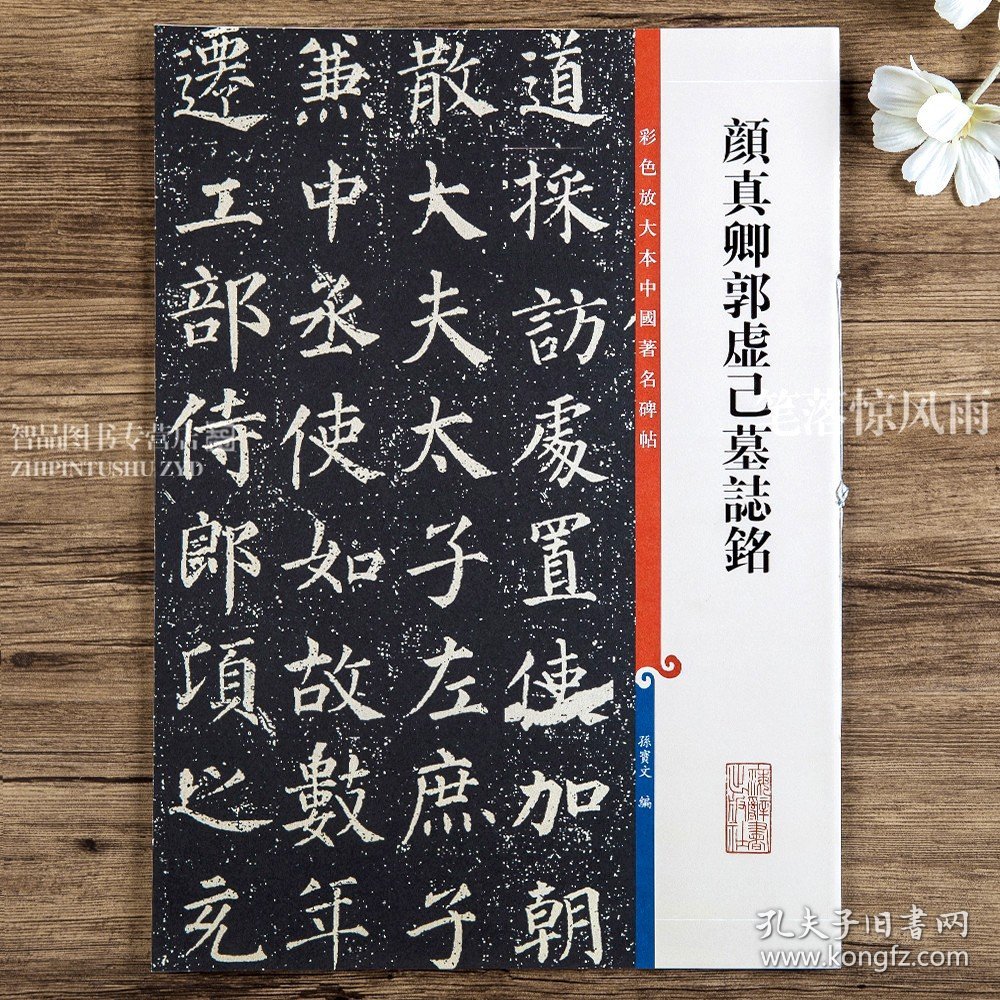 道採訪處置使加朝
散大夫太子左庶子
兼中丞使如故數年
遷工部侍郎項之充
彩色放大本中國著名碑帖
孫寶文 編
顔真卿郭虚己墓誌銘
上海辭書出版社
智品图书专营店
ZHIPINTUSHU ZYD
笔落惊风雨
孔夫子旧书网
www.kongfz.com